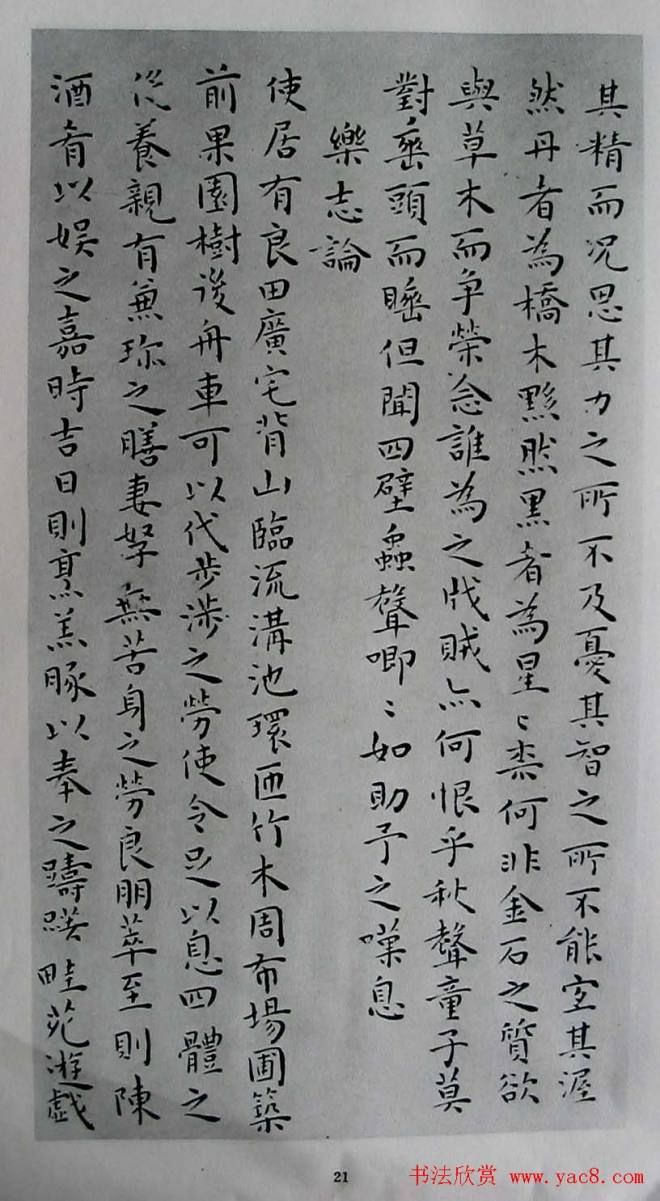 其精而况思其力之所不及憂其智之所不能宜其渥
然丹者為橋木黟然黑者為星〻柰何非金石之質欲
與草木而争榮念誰為之戕賊亦何恨乎秋聲童子莫
對垂頭而睡但聞四壁蟲聲唧〻如助予之嘆息
樂志論
使居有良田廣宅背山臨流溝池環匝竹木周布場圃築
前果園樹後舟車可以代步涉之勞使令足以息四體之
役養親有兼珍之膳妻孥無苦身之勞良朋萃至則陳
酒肴以娛之嘉時吉日則烹羔豚以奉之躊躇畦苑遊戲
21
书法欣赏 www.yac8.com